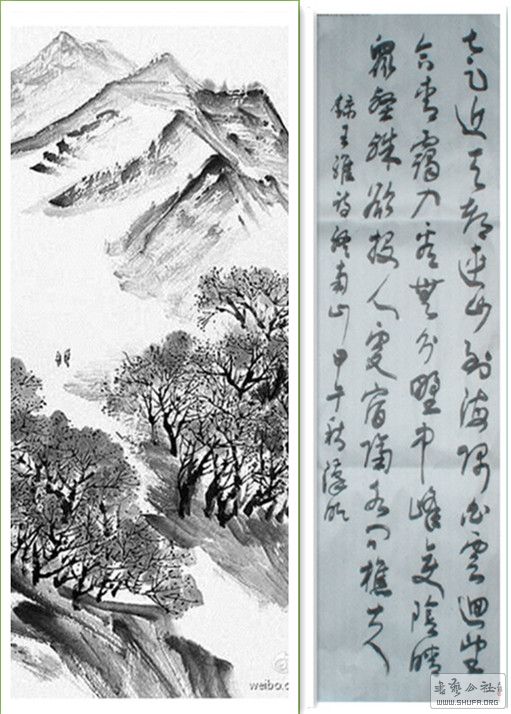 太乙近天都連山到海隅白雲迴望
合青靄入看無分野中峰變陰晴
眾壑殊欲投人處宿隔水問樵夫
錄王維詩終南山 甲午秋
weibo.c
书艺公社
WWW.SHUFA.ORG